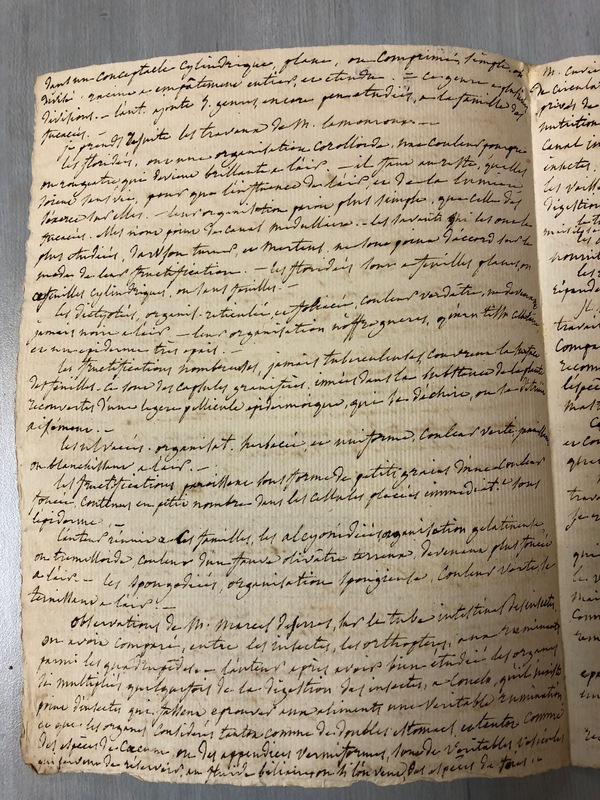 dans un conceptacle cylindrique, plane, ou comprimé, simple ou
divisé. racine a empâtement entier, et etendu. = ce genre a plusieurs
divisions. - laut. ajoute 3 genres, encore peu etudiés, a la famille des
fucacés. -
je prends desuite les travaux de M. lamouroux. -
les floridés, ont une organisation coroloide, une couleur pourpre
ou rougatre, qui devient brillante a lair. - il faut au reste quelles
soient sans vie, pour que linfluence de lair et de la lumiere
sexerce sur elles. - leur organisation paroit plus simple, que celle des
fucacés. elles nont point de canal medullaire. - les savants qui les ont le
plus etudiés, dawson turner et Mertens, ne sont point daccord sur le
mode de leur fructification. - les floridés sont a feuilles planes, ou
a feuilles cylindriques, ou sans feuilles. -
les dictyotés, organis. reticulée, et foliacée, couleur verdâtre, ne devenant
jamais noire a lair - leur organisation noffre gueres, qu'un tissu cellulaire
et un epiderme très epais. -
les fructifications nombreuses, jamais tuberculeuses, couvrent la surface
des feuilles. Ce sont des capsules graniferes, innées dans la substance de la plante
recouvertes d'une legere pellicule epidermoique, qui se déchire, ou se détruit
aisement. -
les ulvacées. organisat. herbacée et uniforme, couleur verte, jaunissant
ou blanchissant a lair. -
les fructifications paroissent sous forme de petits grains d'une couleur
foncée contenus en petit nombre dans les cellules placées immediat. sous
lepiderme.
lauteur réunit a ces familles, les alcyonidiées organisation gelatineuse,
ou tremelloide couleur d'un fauve olivâtre terreux, devenant plus foncée
a lair - les spongodiés, organisation spongieuse, couleur verte, se
ternissant a lair. -
observations de M. Marcel de serres, sur le tube intestinal des insectes.
on avoit comparé, entre les insectes, les orthopteres, aux ruminants
parmi les quadrupedes. - lauteur après avoir bien etudié les organes
si multipliés quelquefois de la digestion des insectes, a conclu, quil n'existe
point d'insectes qui fassent eprouver aux aliments une veritable rumination
et que les organes considérés tantot comme de doubles estomacs, et tantot comme
des espèces de cœcum, ou des appendices vermiformes, sont de veritables vesicules
qui servent de reservoir au fluide biliaire, ou si lon veut, des especes de foies. -